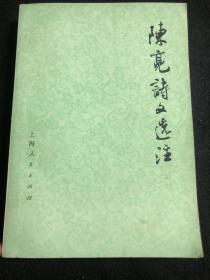 陈亮詩文选注
上海人民出版社